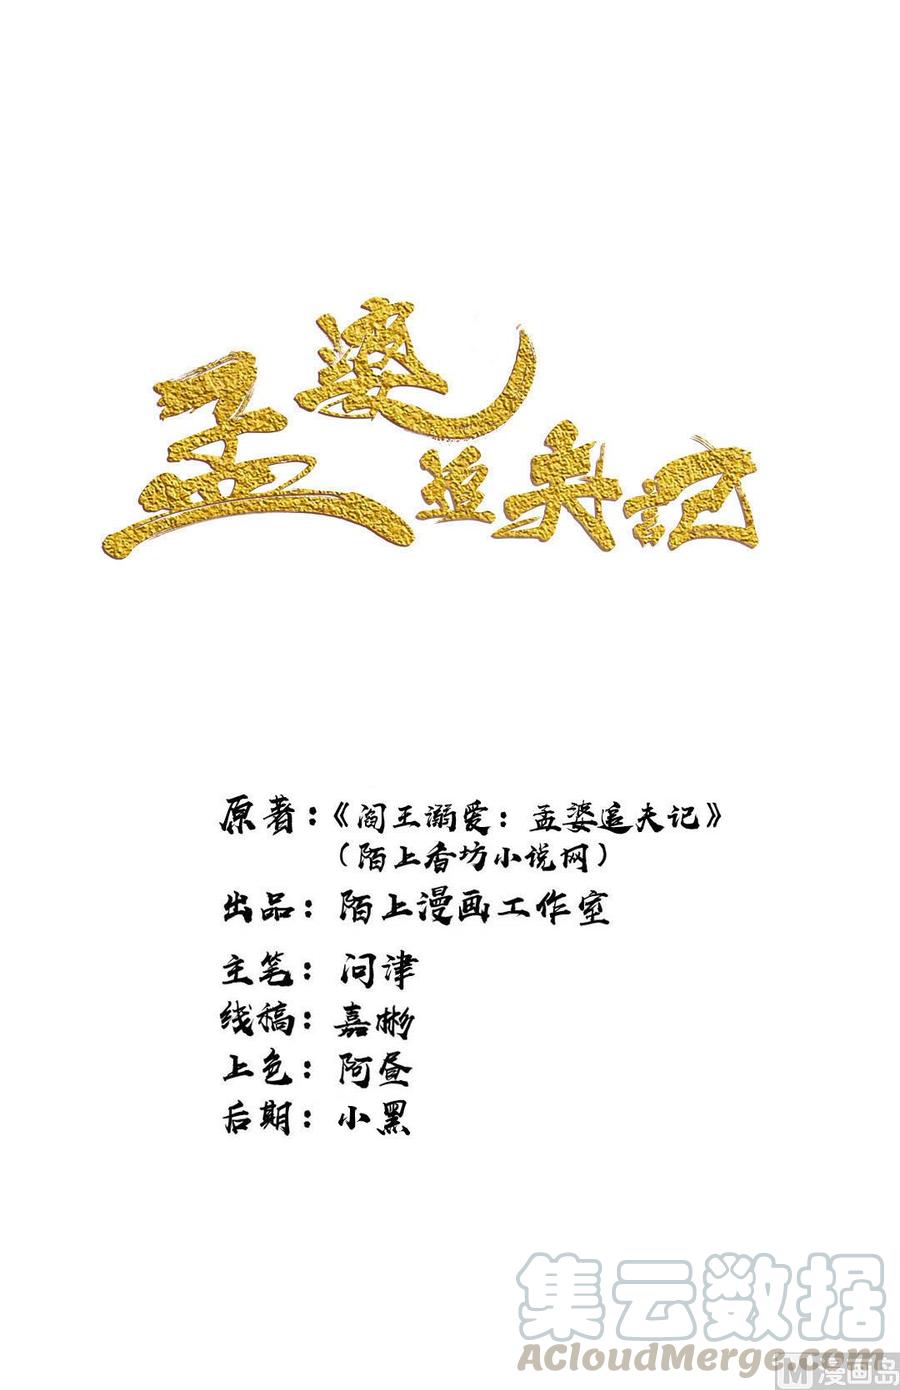 孟婆追夫记
原著：《阎王溺爱：孟婆追夫记》
（陌上香坊小说网）
出品：陌上漫画工作室
主笔：问津
线稿：嘉彬
上色：阿昼
后期：小黑
集云数据
ACloudMerge.com
M漫画岛